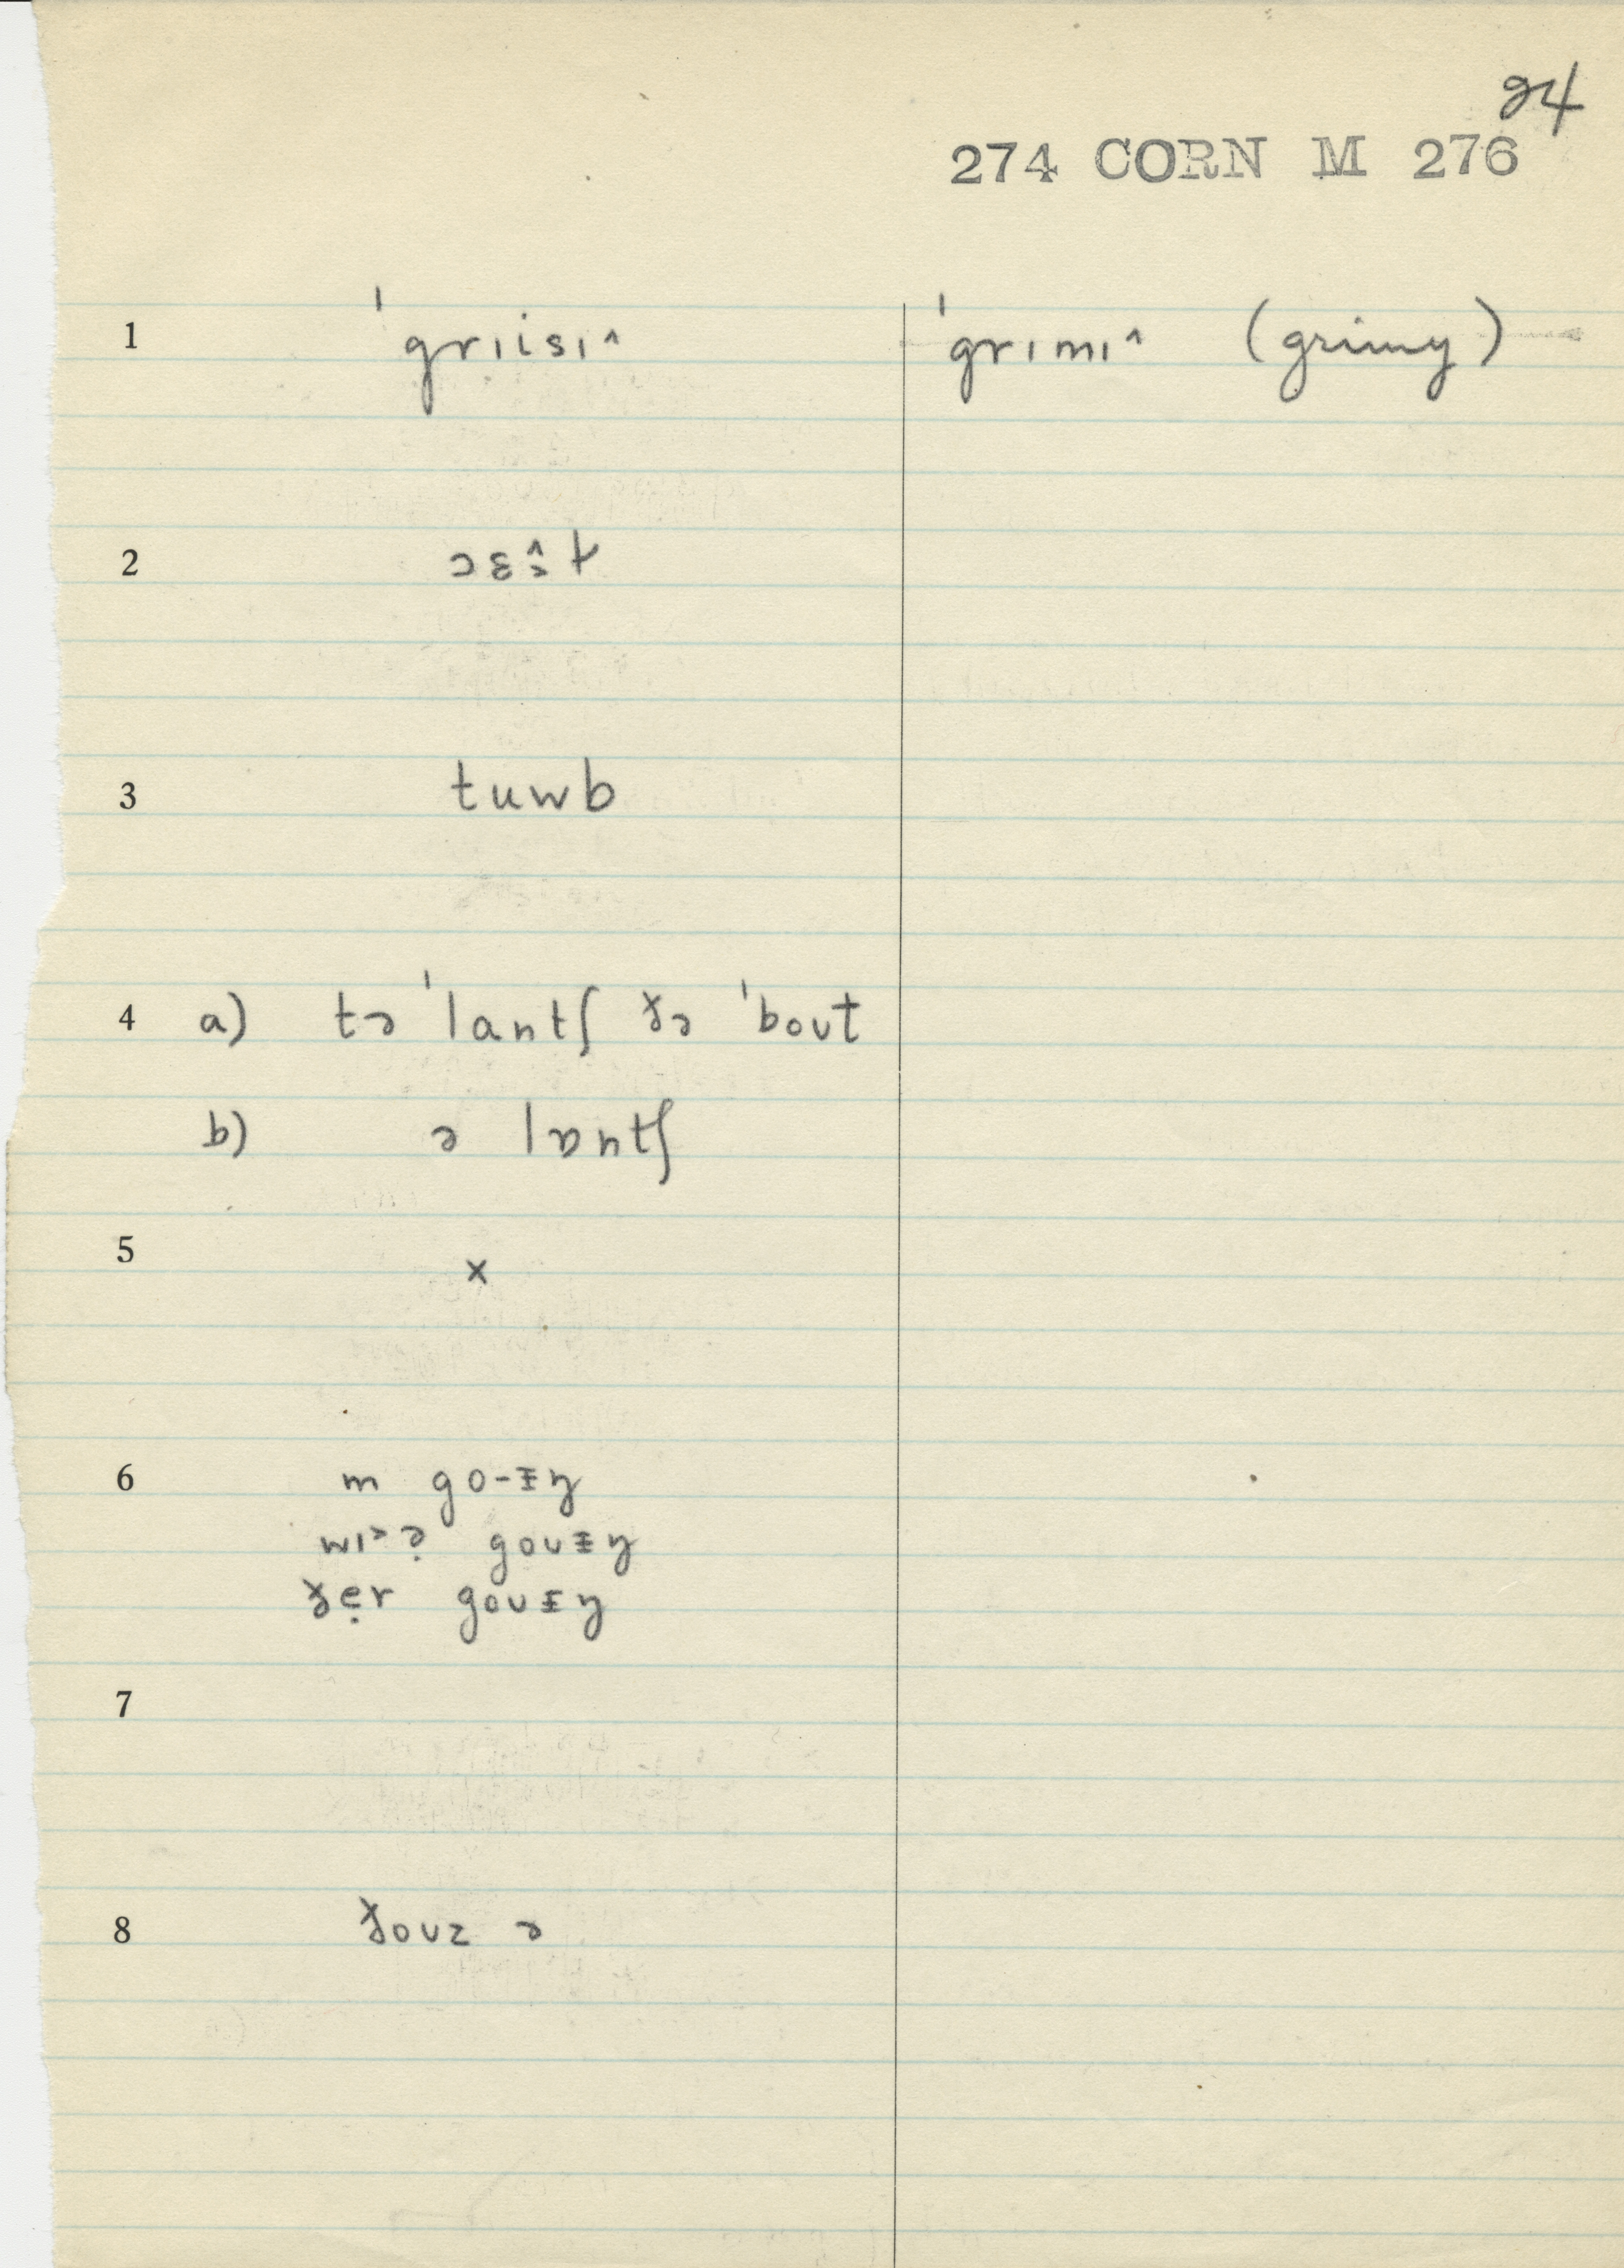 24
274 CORN M 276
1 ˈgrɪisɪ^ ˈgrɪmɪ^ (grimy)
2
3 tuwb
4 a) tə ˈlantʃ ðə ˈbout
b) ə lɒntʃ
5 x
6 m go-ɪŋ
gouɪŋ
ðẹr gouɪŋ
7
8 ðouz ə